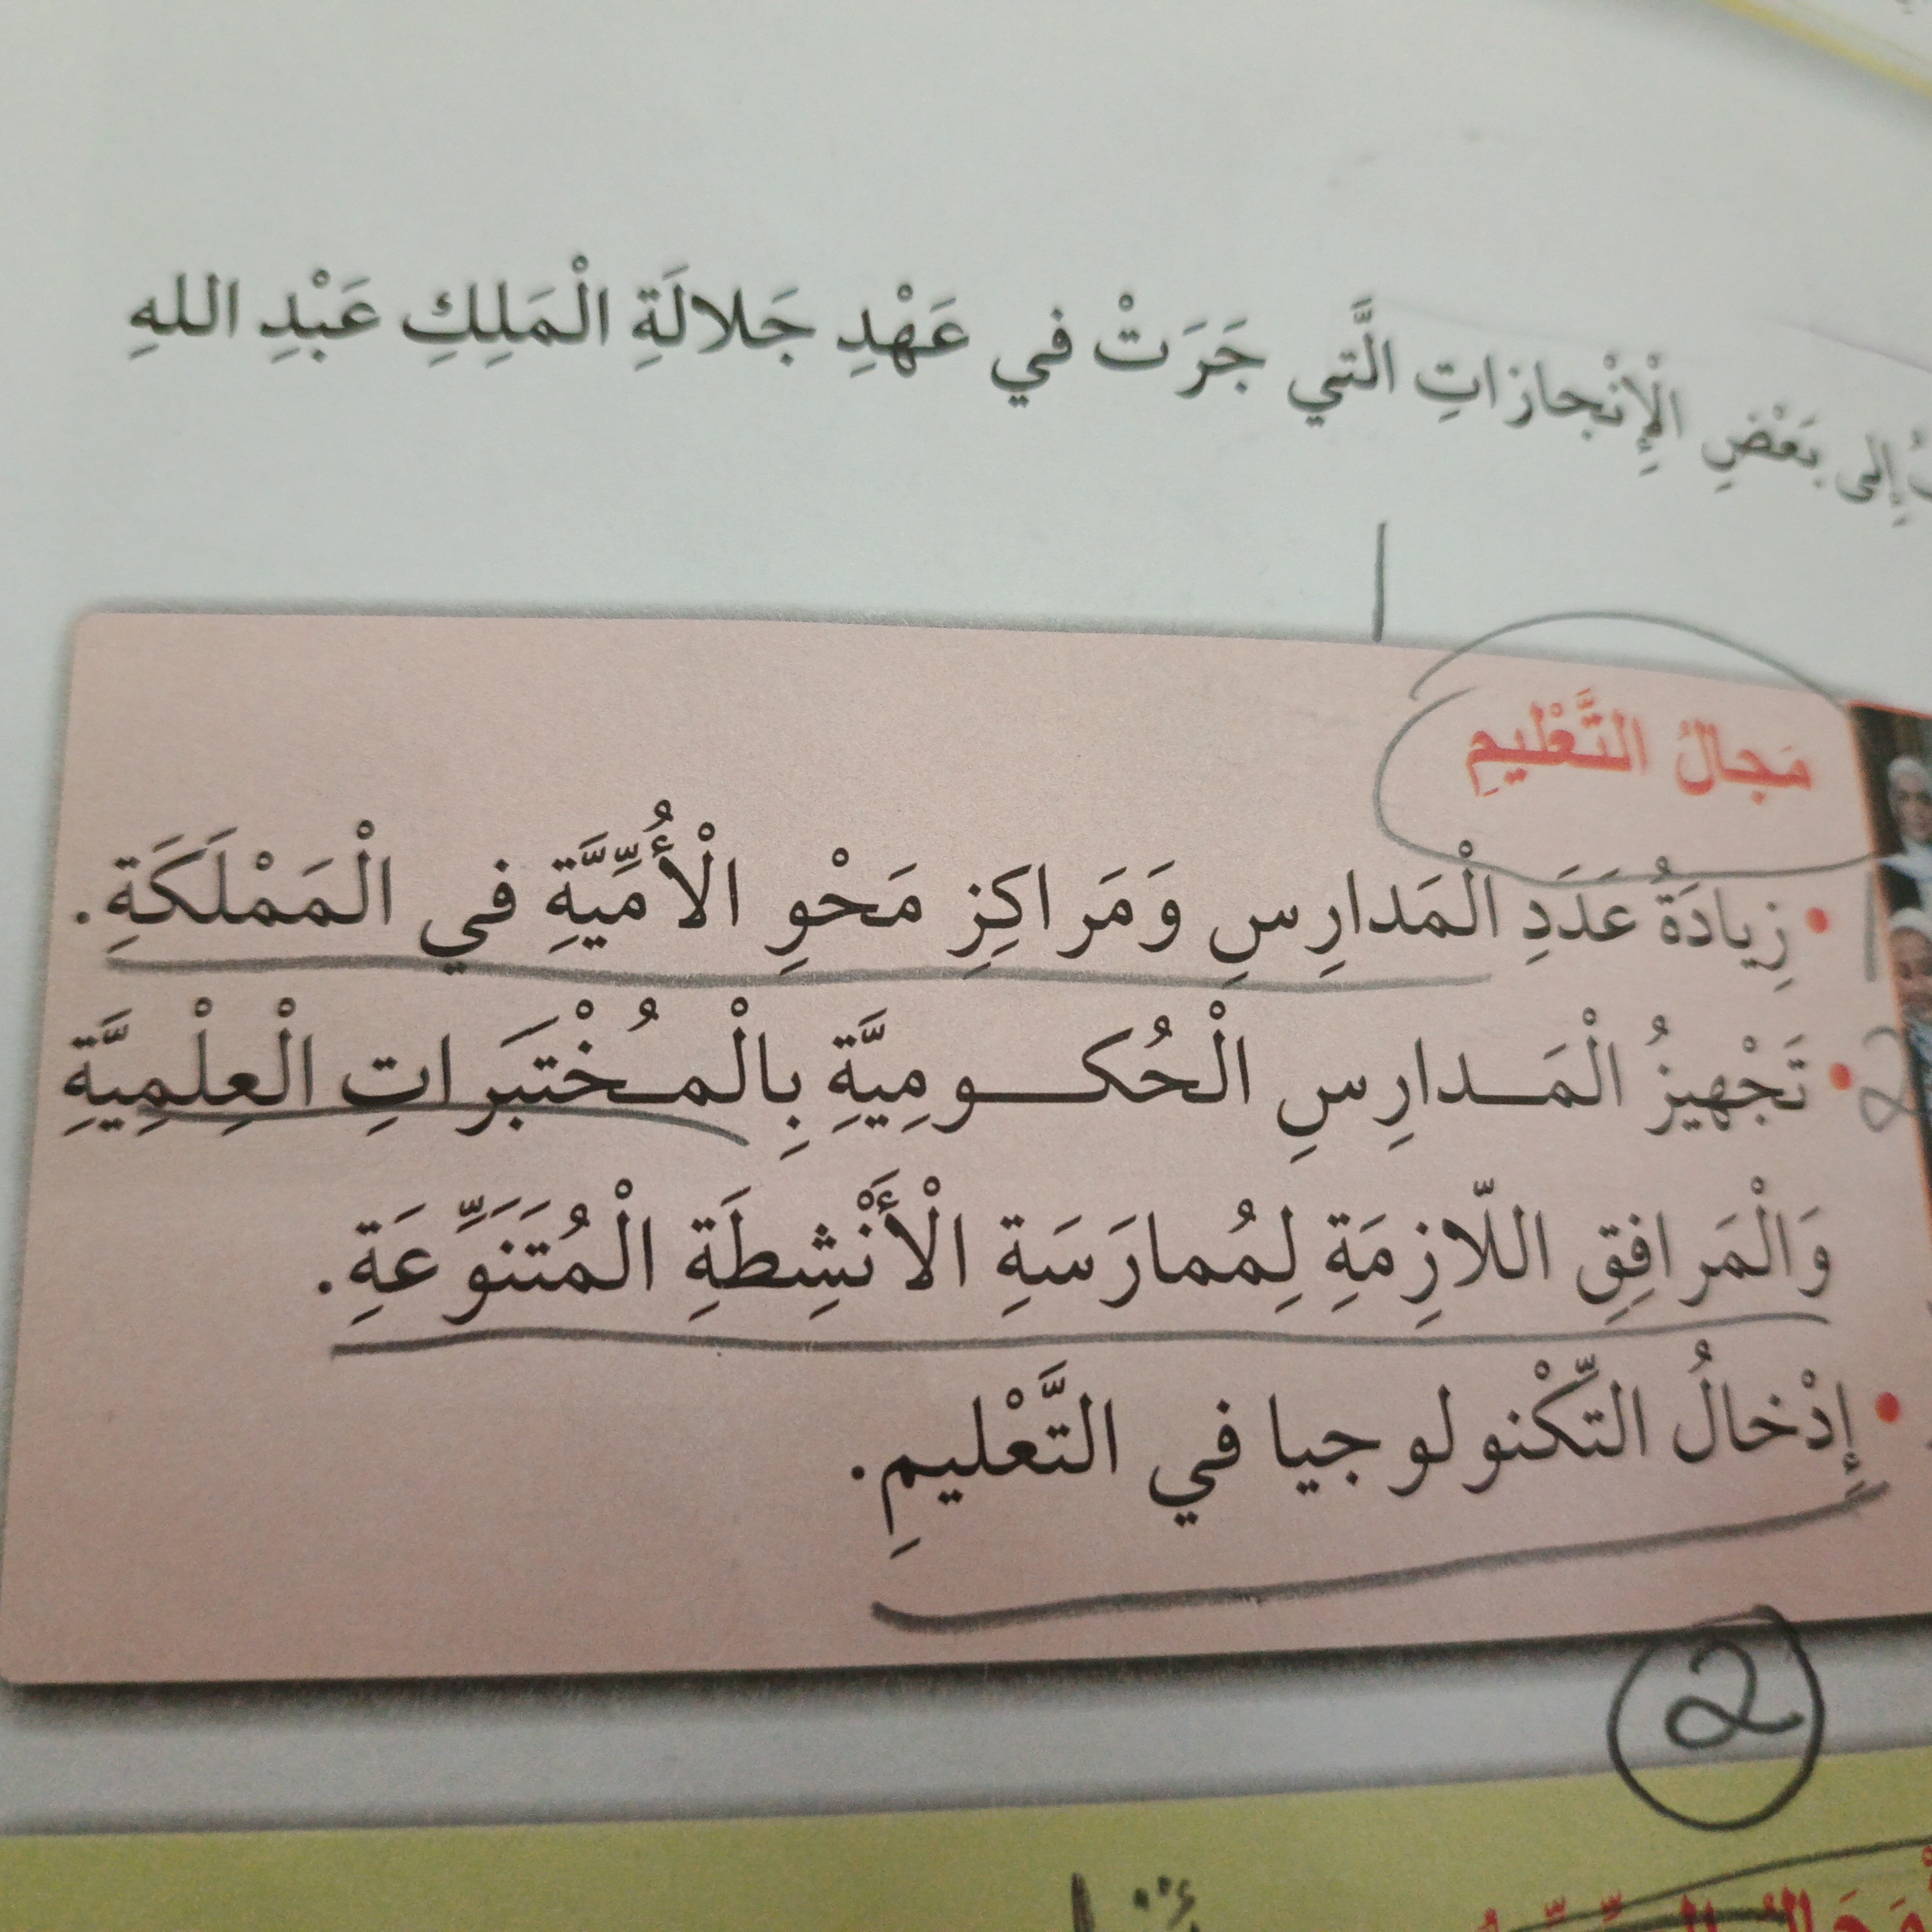 إِلى بَعْضِ الْإِنْجازاتِ الَّتي جَرَتْ في عَهْدِ جَلالَةِ الْمَلِكِ عَبْدِ اللهِ
مَجالُ التَّعْليمِ
• زِيادَةُ عَدَدِ الْمَدارِسِ وَمَراكِزِ مَحْوِ الْأُمِّيَّةِ في الْمَمْلَكَةِ.
1
• تَجْهيزُ الْمَـدارِسِ الْحُكـومِيَّةِ بِالْمُـخْتَبَراتِ الْعِلْمِيَّةِ
2
وَالْمَرافِقِ اللّازِمَةِ لِمُمارَسَةِ الْأَنْشِطَةِ الْمُتَنَوِّعَةِ.
• إِدْخالُ التِّكْنولوجيا في التَّعْليمِ.
2